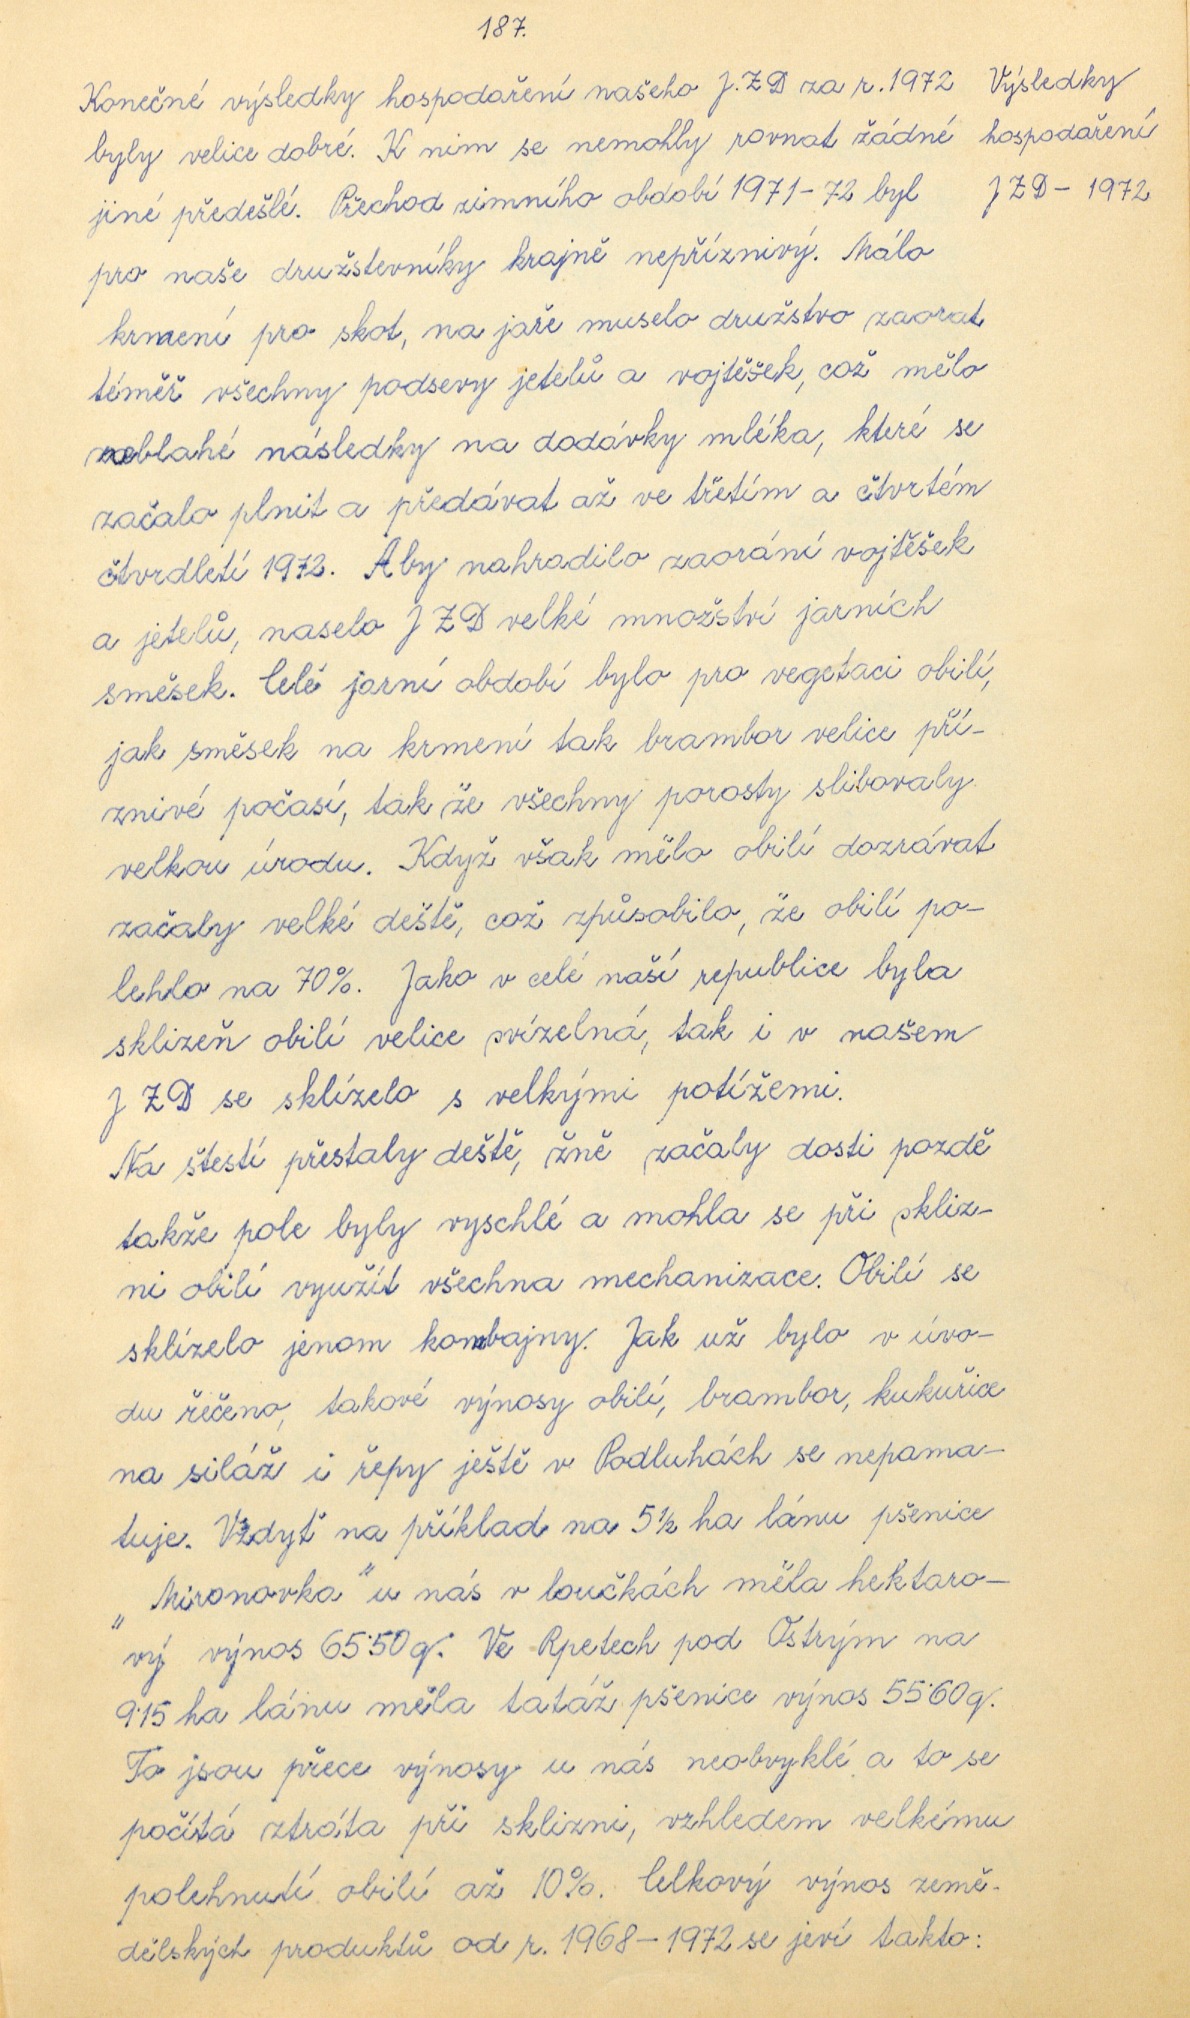 187.
Konečné výsledky hospodaření našeho J.ZD za r. 1972
byly velice dobré. K nim se nemohly rovnat žádné
jiné předešlé. Přechod zimního období 1971-72 byl
Výsledky
hospodaření
JZD - 1972
pro naše družstevníky krajně nepříznivý. Málo
krmení pro skot, na jaře muselo družstvo zaorat
téměř všechny podsevy jetelů a vojtěšek, což mělo
neblahé následky na dodávky mléka, které se
začalo plnit a předávat až ve třetím a čtvrtém
čtvrdletí 1972. Aby nahradilo zaorání vojtěšek
a jetelů, naselo JZD velké množství jarních
směsek. Celé jarní období bylo pro vegetaci obilí,
jak směsek na krmení tak brambor velice pří-
znivé počasí, tak že všechny porosty slibovaly
velkou úrodu. Když však mělo obilí dozrávat
začaly velké deště, což způsobilo, že obilí po-
lehlo na 70%. Jako v celé naší republice byla
sklizeň obilí velice svízelná, tak i v našem
JZD se sklízelo s velkými potížemi.
Na štestí přestaly deště, žně začaly dosti pozdě
takže pole byly vyschlé a mohla se při skliz-
ni obilí využít všechna mechanizace. Obilí se
sklízelo jenom kombajny. Jak už bylo v úvo-
du řečeno, takové výnosy obilí, brambor, kukuřice
na siláž i řepy ještě v Podluhách se nepama-
tuje. Vždyť na příklad na 5½ ha lánu pšenice
„Mironovka" u nás v loučkách měla hektaro-
vý výnos 65·50 q. Ve Rpetech pod Ostrým na
9·15 ha lánu měla tatáž pšenice výnos 55·60 q.
To jsou přece výnosy u nás neobvyklé a to se
počítá ztráta při sklizni, vzhledem velkému
polehnutí obilí až 10%. Celkový výnos země-
dělských produktů od r. 1968-1972 se jeví takto: